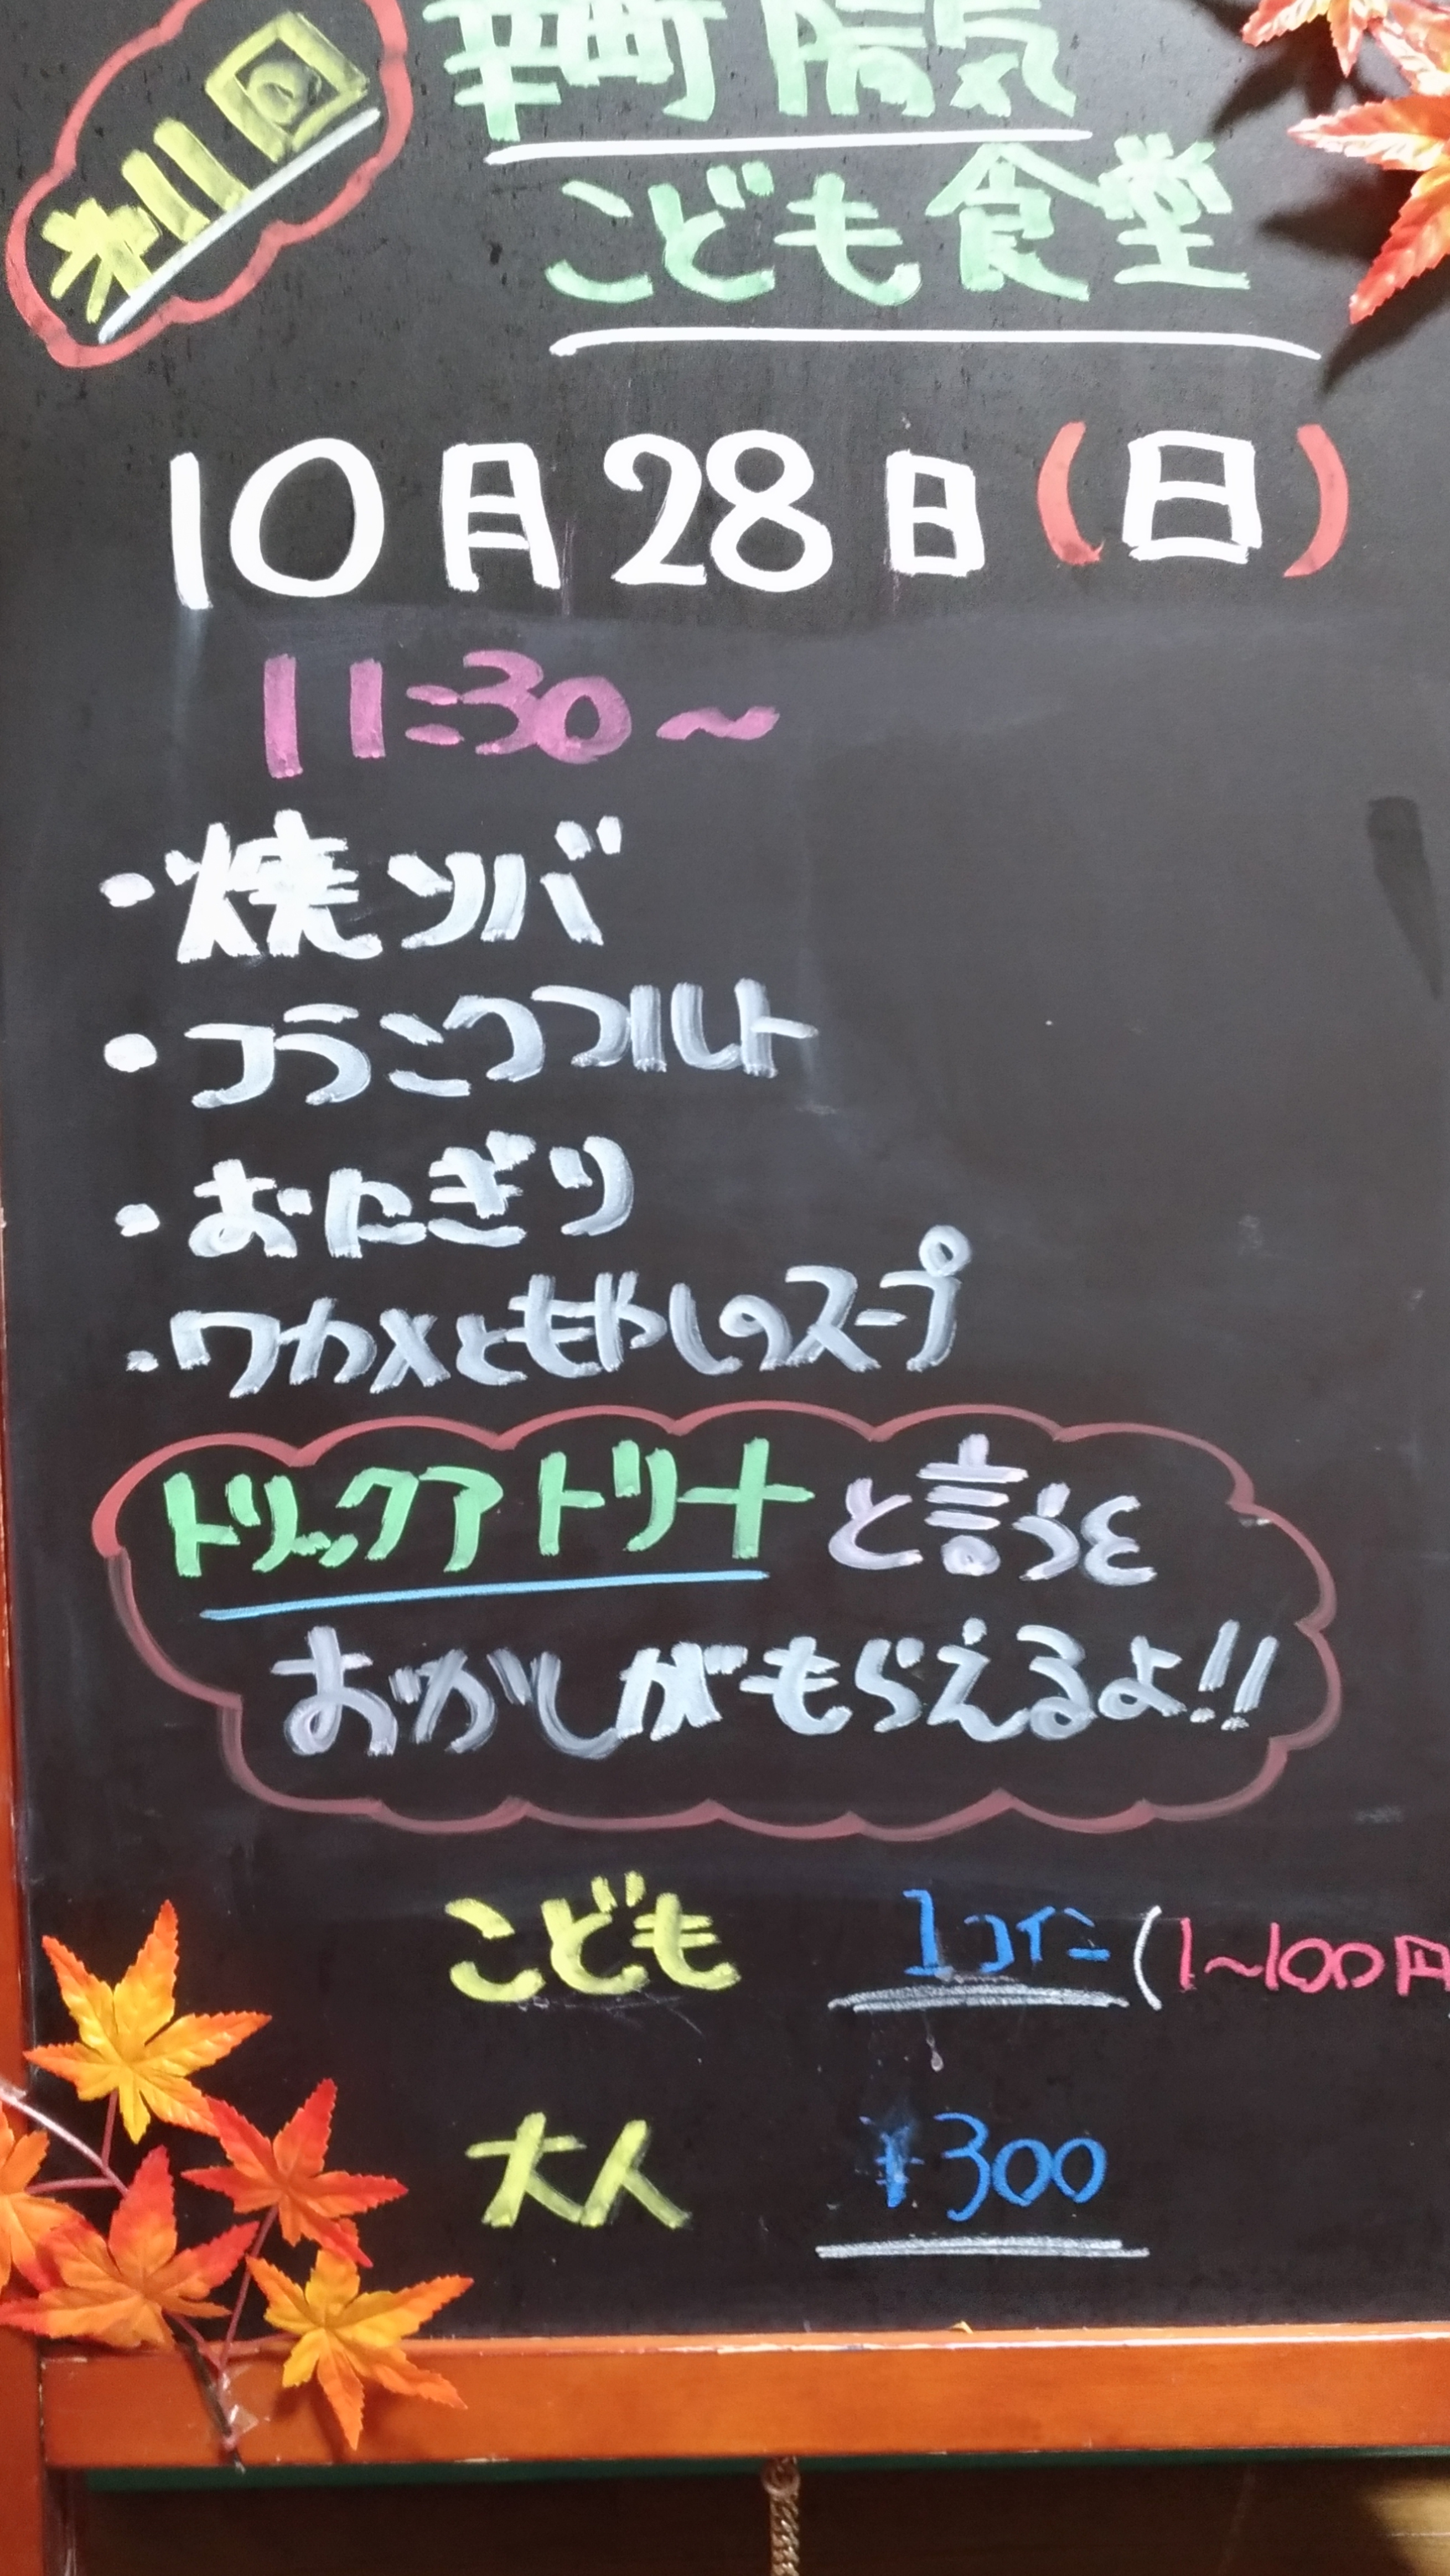 才11回
幸町 陽気
こども食堂
10月28日(日)
11:30~
・焼ソバ
・フランクフルト
・おにぎり
・ワカメともやしのスープ
トリックアトリートと言うと
おかしがもらえるよ!!
こども 1コイン(1~100円
大人 ¥300